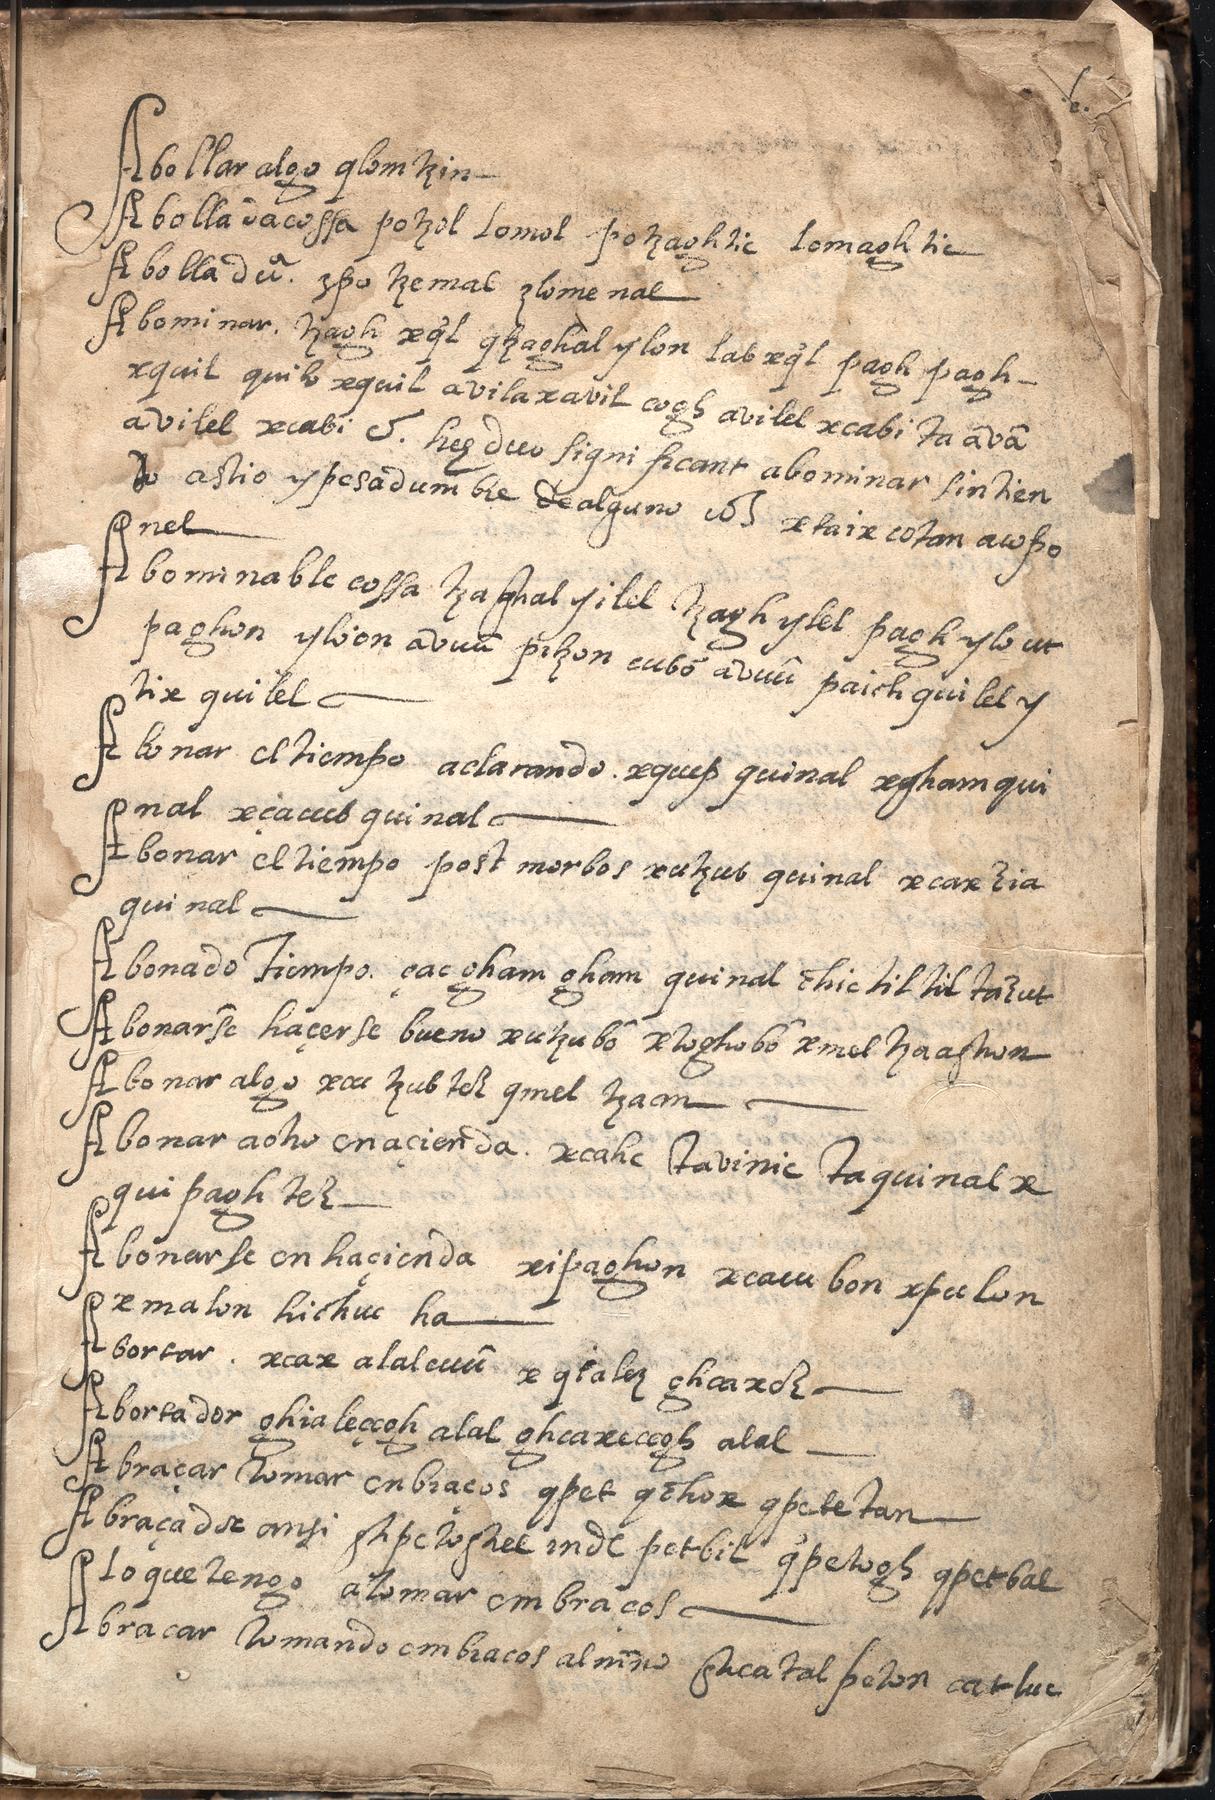 Abollar algo qlomtzin
Abollada cossa potzol lomol potzaghtic lomaghtic
Abolladu^a. zpotzemal zlomenal
Abominar. tzagh xq^il qtzaghal ylon lab xq^il pagh pagh
xquil quilo xquil avilaxavil cogh avilel xcabi ta avā
avilel xcabi duo significant abominar sintien
do astio y pesadumbre de alguno xtaix cotan acopo
nel
Abominable cossa tzaghal yilel tzagh ylel pagh ylout
paghon yloon avuū pitzon cubō avuū paich quilel y
tix quilel
Abonar el tiempo aclarando. xquep quinal xgham qui
nal xçacub quinal
Abonar el tiempo post morbos xutzub quinal xcax
quinal
Abonado tiempo. çac gham gham quinal chic til til
Abonarse haçerse bueno xutzubō xloghobō xmel tzaaghon
Abonar algo qmel tzaan
Abonar a otro en açienda. xcahc tavinic taquinal x
qui pagh
Abonarse en haçienda xipaghon xcauubon xpulon
xmalon hichuc ha
Abortar. xcax alal cuuū
Abortador alal alal
Abraçar tomar en braços qpet qchox qpetetan
Abraçador ansi inde petbil q^petogh qpetbal
lo que tengo a tomar em braços
Abracar tomando em bracos al niño ghcatal peton